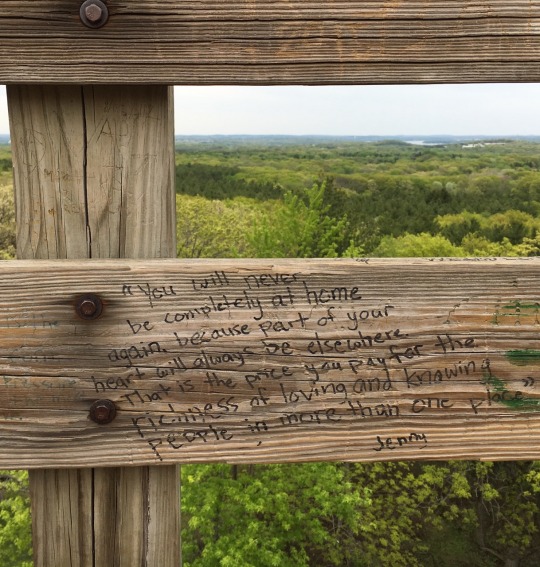 "You will never
be completely at home
again, because part of your
heart will always be elsewhere.
That is the price you pay for the
richness of loving and knowing
people in more than one place."
Jenny